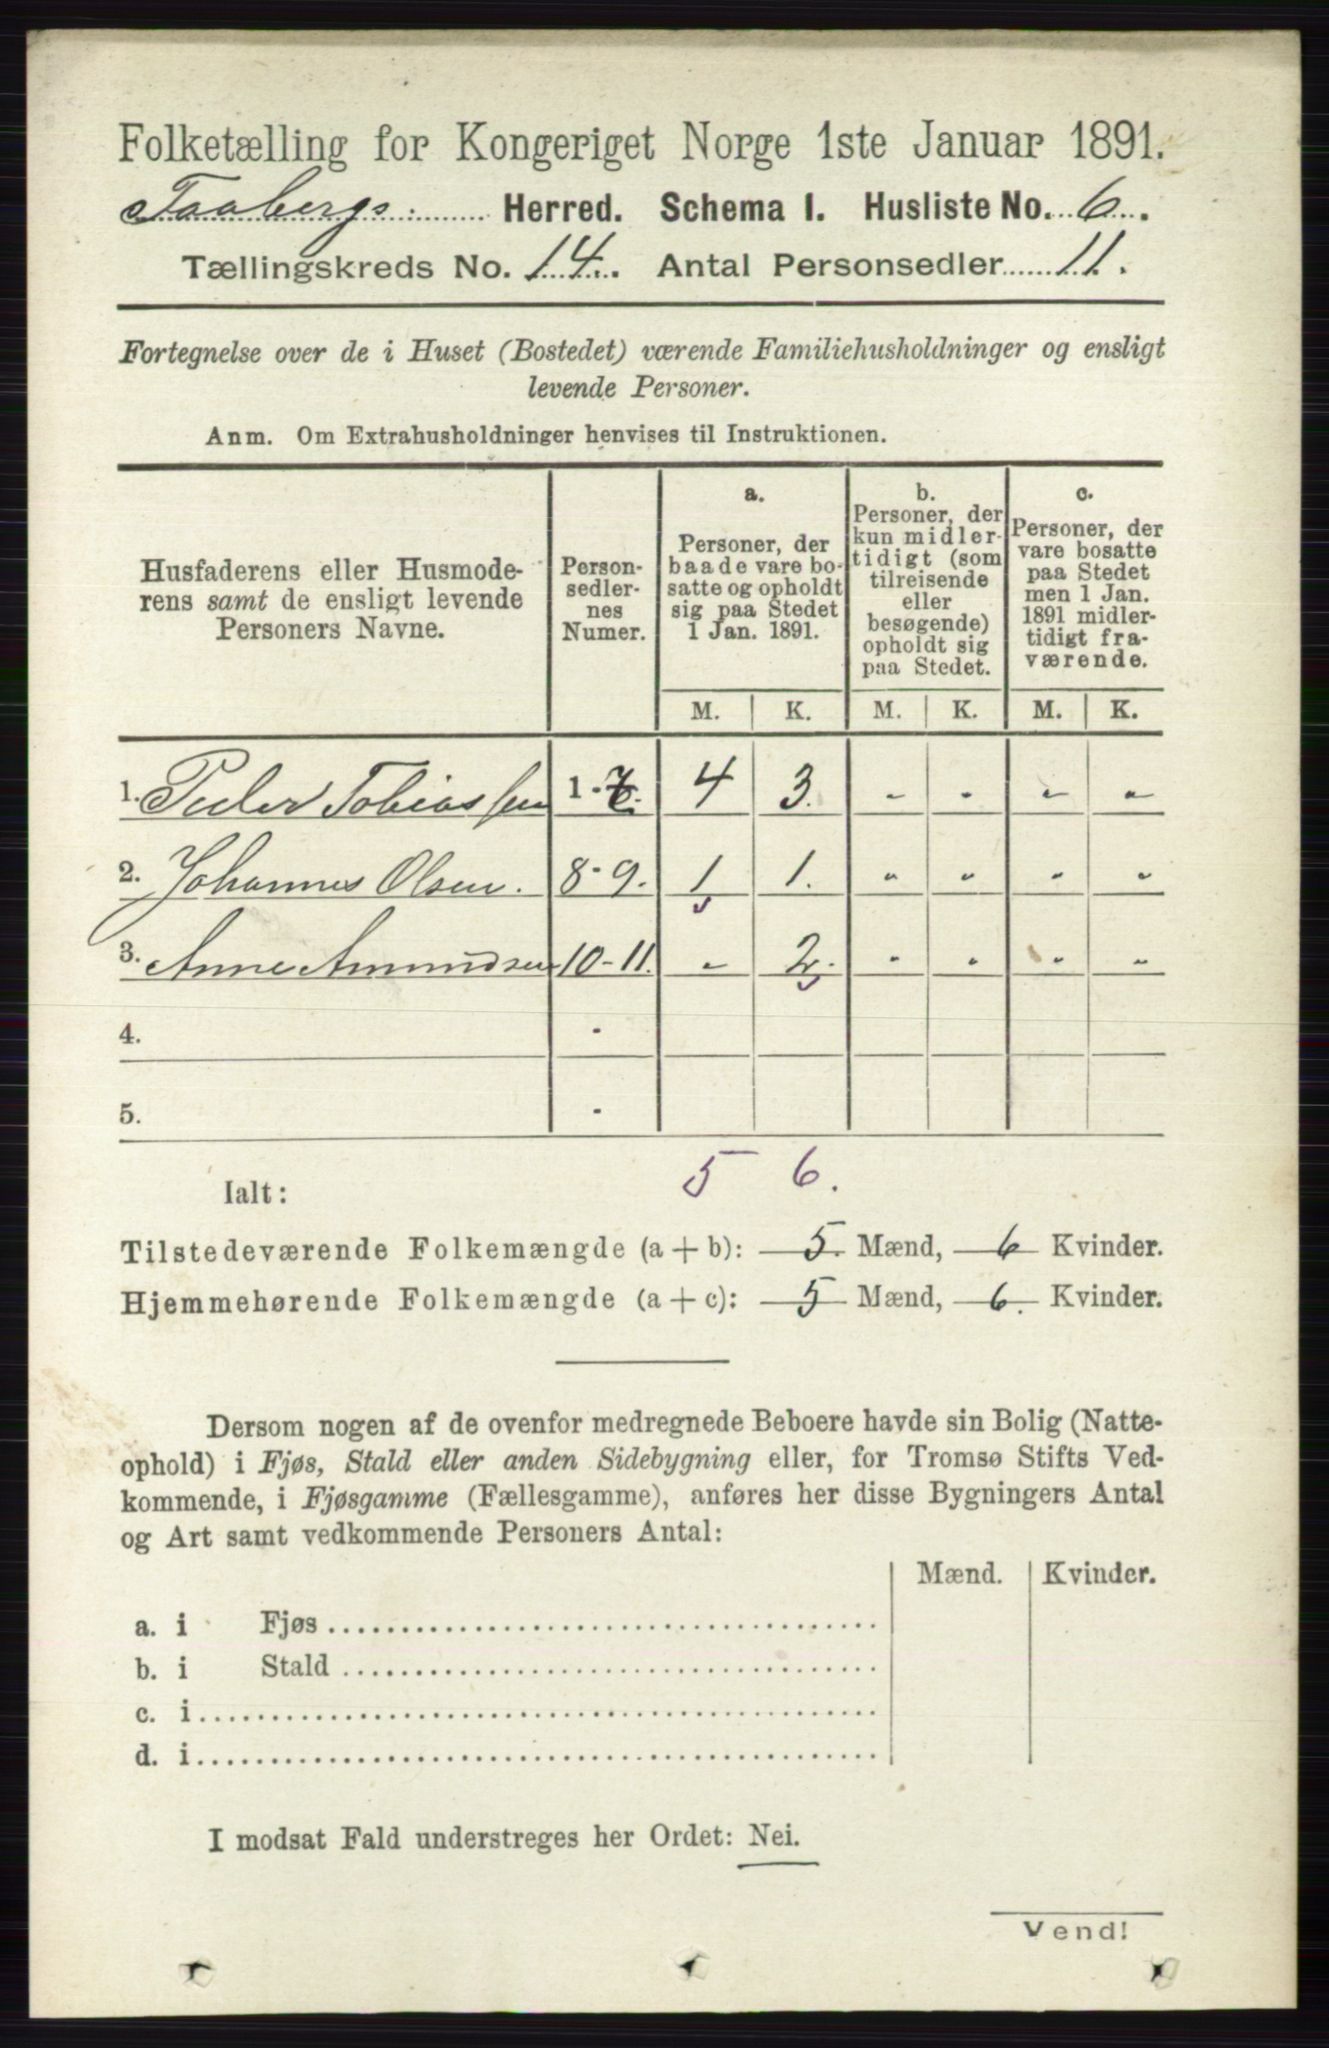 Folketælling for Kongeriget Norge 1ste Januar 1891.
Faabergs Herred. Schema 1. Husliste No. 6.
Tællingskreds No. 14. Antal Personsedler 11.
Fortegnelse over de i Huset (Bostedet) værende Familiehusholdninger og ensligt
levende Personer.
Anm. Om Extrahusholdninger henvises til Instruktionen.
Husfaderens eller Husmode-
rens samt de ensligt levende
Personers Navne.
Person-
sedler-
nes
Numer.
a.
Personer, der
baade vare bo-
satte og opholdt
sig paa Stedet
1 Jan. 1891.
b.
Personer, der
kun midler-
tidigt (som
tilreisende
eller
besøgende)
opholdt sig
paa Stedet.
c.
Personer, der
vare bosatte
paa Stedet
men 1 Jan.
1891 midler-
tidigt fra-
værende.
M. K. M. K. M. K.
1. Peder Tobiassen 1-7. 4 3. - - - -
2. Johannes Olsen. 8-9. 1 1. - - - -
3. Anne Amundsen 10-11. - 2. - - - -
4. -
5. -
Ialt: 5 6.
Tilstedeværende Folkemængde (a + b): 5. Mænd, 6 Kvinder.
Hjemmehørende Folkemængde (a + c): 5 Mænd, 6. Kvinder.
Dersom nogen af de ovenfor medregnede Beboere havde sin Bolig (Natte-
ophold) i Fjøs, Stald eller anden Sidebygning eller, for Tromsø Stifts Ved-
kommende, i Fjøsgamme (Fællesgamme), anføres her disse Bygningers Antal
og Art samt vedkommende Personers Antal:
Mænd. Kvinder.
a. i Fjøs
b. i Stald
c. i
d. i
I modsat Fald understreges her Ordet: Nei.
Vend!